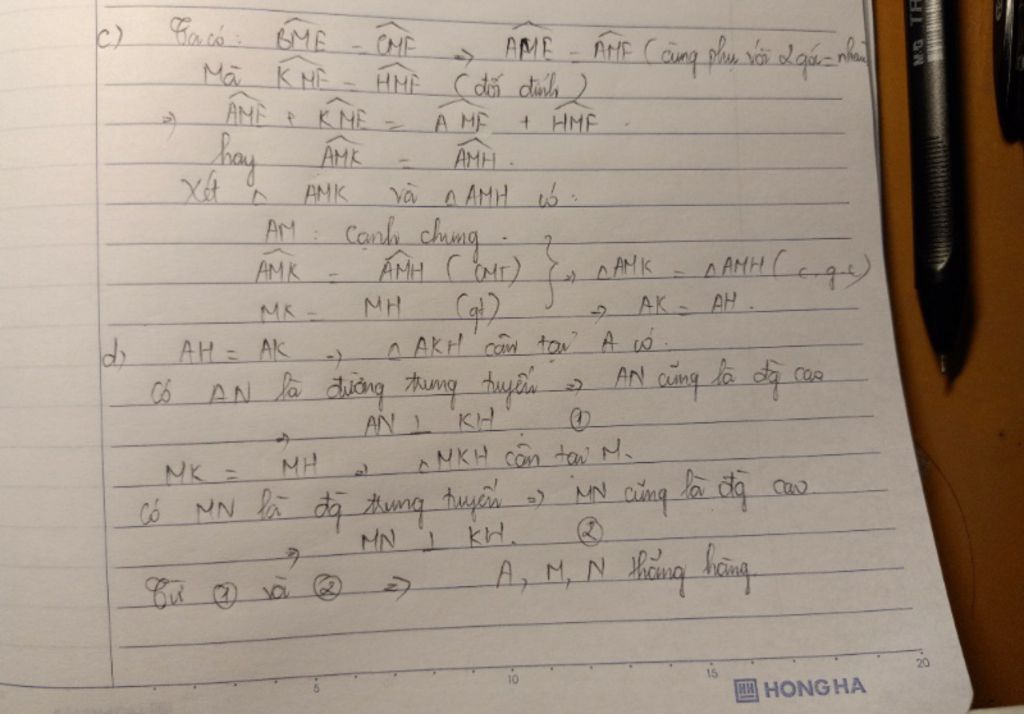 c) Ta có: BME = CMF => AME = AMF (cùng phụ với 2 góc = nhau
Mà KME = HMF (đối đỉnh)
=> AME + KME = AMF + HMF.
hay AMK = AMH.
Xét △ AMK và △AMH có:
AM: cạnh chung.
AMK = AMH (CMT) } => △AMK = △AMH (c.g.c)
MK = MH (gt) => AK = AH.
d) AH = AK => △ AKH cân tại A có.
Có AN là đường trung tuyến => AN cũng là đg cao
=> AN ⊥ KH ①
MK = MH => △MKH cân tại M.
Có MN là đg trung tuyến => MN cũng là đg cao
=> MN ⊥ KH. ②
Từ ① và ② => A, M, N thẳng hàng.
5 10 15 20
HONG HA